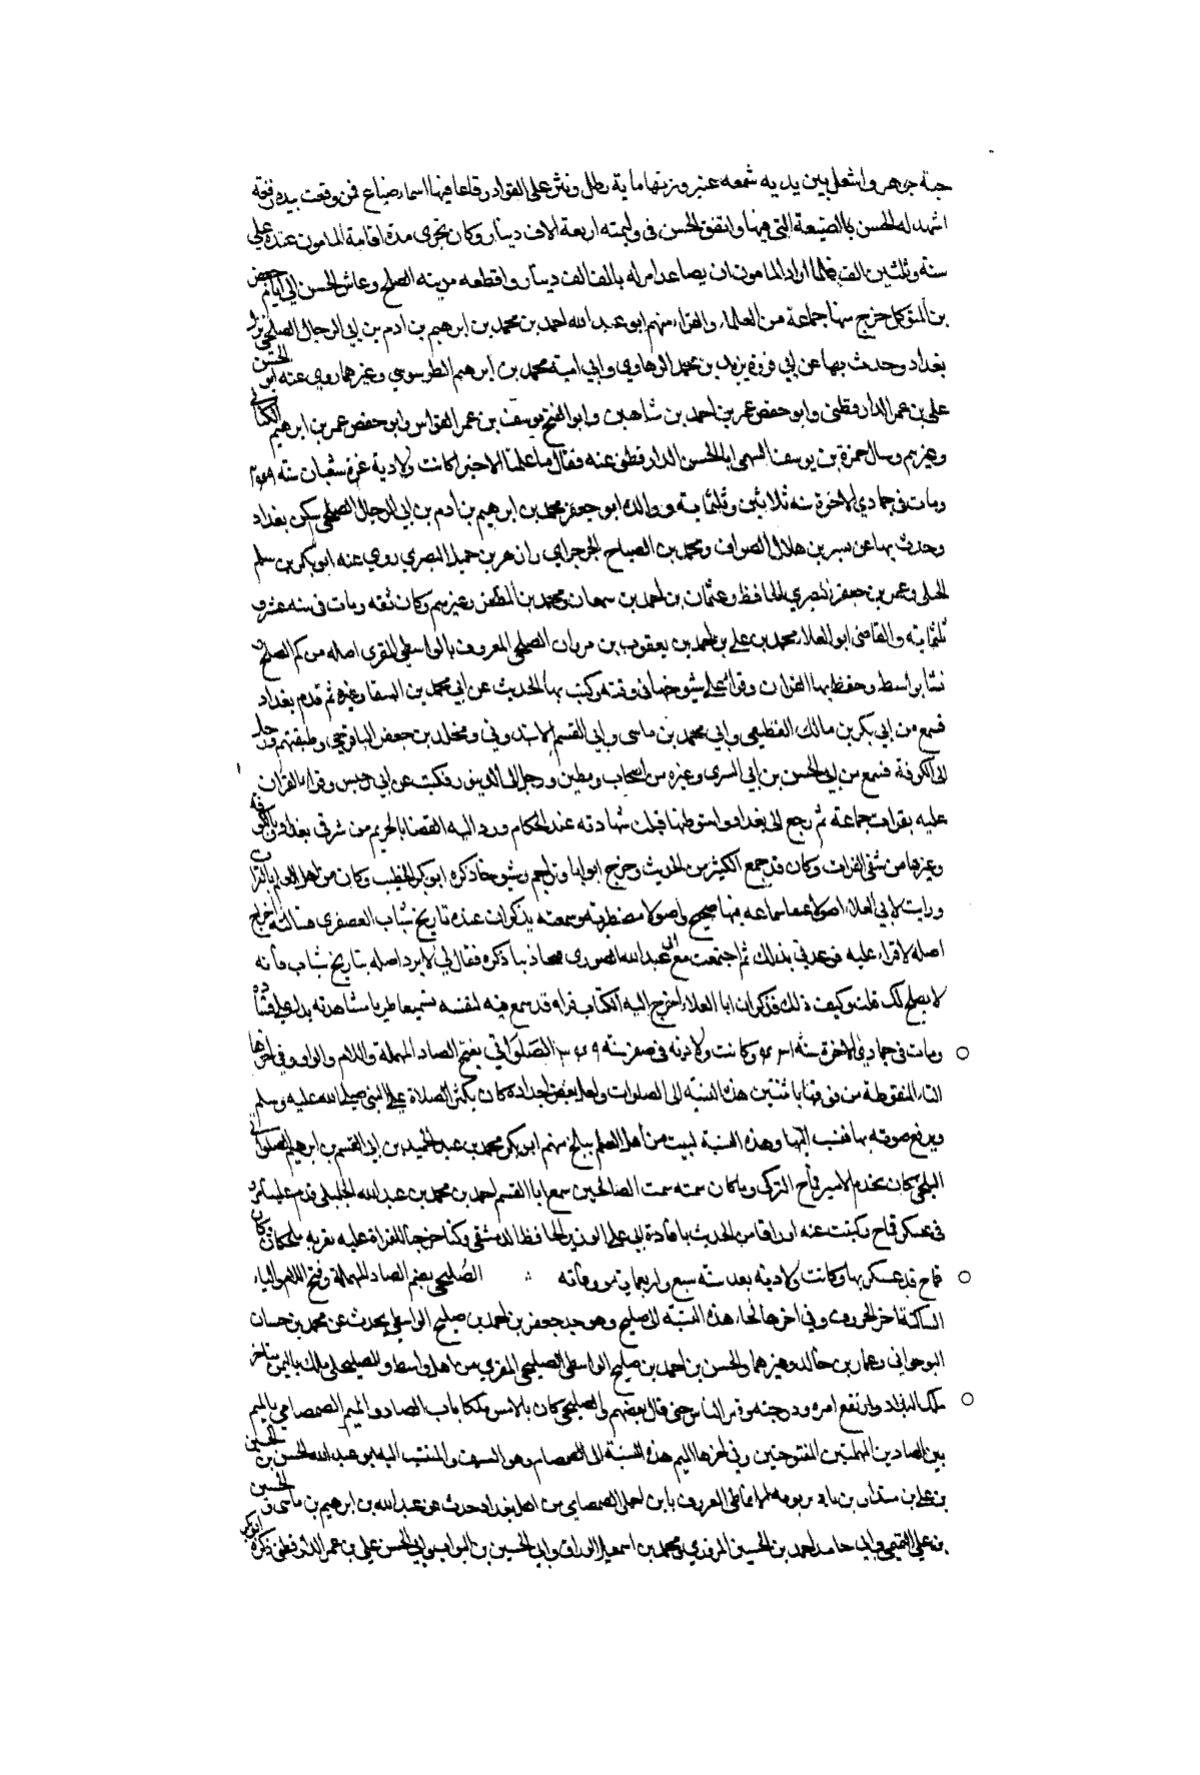 حبة جوهر واشعل بين يديه شمعه عنبر وزنها ماية رطل ونثر على القواد رقاعا فيها اسماء ضياع فمن وقعت بيده رقعة
اشهد له الحسن بالضيعة التي فيها وانفق الحسن في وليمته اربعة الاف دينار وكان يجرى مدة اقامة المامون عنده علي
سنة وثلثين الف فلما اراد المامون ان يصاعد امر له بالف الف دينار واقطعه مدينه الصلح وعاش الحسن الى ايام جعفر
بن المتوكل خرج منها جماعة من العلماء والقراء منهم ابو عبد الله احمد بن محمد بن ابرهيم بن ادم بن ابي الرجال الصلحي نزل
بغداد وحدث بها عن ابي فروة يزيد بن محمد الرهاوي وابي امية محمد بن ابرهيم الطرسوسي وغيرهما روي عنه ابو الحسن
على بن عمر الدارقطني وابو حفص عمر بن احمد بن شاهين وابو الفتح يوسف بن عمر القواس وابو حفص عمر بن ابرهيم الكتاني
وغيرهم وسال حمزة بن يوسف السهمي ابا الحسن الدارقطني عنه فقال ما علمنا الا خيرا كانت ولادته غرة شعبان سنه ٢٤٩
ومات في جمادي الاخرة سنه ثلاثين وثلثماية ووالده ابو جعفر محمد بن ابرهيم بن ادم بن ابي الرجال الصلحي سكن بغداد
وحدث بها عن بسر بن هلال الصواف ومحمد بن الصباح الجرجراي وازهر بن جميل البصري روي عنه ابو بكر بن سلم
الختلي وعمر بن جعفر البصري الحافظ وعثمان بن احمد بن سمعان ومحمد بن المظفر وغيرهم وكان ثقه ومات في سنه عشر و
ثلثماية والقاضى ابو العلاء محمد بن علي بن احمد بن يعقوب بن مروان الصلحي المعروف بالواسطي المقرى اصله من فم الصلح
نشا بواسط وحفظ بها القران وقرا على شيوخها في وقته وكتب بها الحديث عن ابي محمد بن السقا وغيره ثم قدم بغداد
فسمع من ابي بكر بن مالك القطيعي وابي محمد بن ماسى وابي القسم الابندوني ومخلد بن جعفر الباقرحي وطبقتهم ورحل
الى الكوفة فسمع من ابي الحسن بن ابي السرى وغيره من اصحاب مطين ورحل الى الدينور فكتب عن ابي حبش وقرا القران
عليه بقرات جماعة ثم رجع الى بغداد واستوطنها فقبلت شهادته عند الحكام ورد اليه القضا بالحريم من شرقى بغداد وبالكوفة
وغيرها من سقى الفرات وكان قد جمع الكثير من الحديث وخرج ابوابا وتراجم وشيوخا ذكره ابو بكر الخطيب وكان من اهل العلم بالقرات
ورايت لابي العلاء اصولا عتقا سماعه فيها صحيح واصولا مضطربة وسمعته يذكر ان عنده تاريخ شباب العصفرى فسالته اخراج
اصله لاقراء عليه فوعدني بذلك ثم اجتمعت مع ابي عبد الله الصورى فتجاذبنا ذكره فقال لي لا يرد اصله بتاريخ شباب فانه
لا يصلح لك قلت وكيف ذلك فذكر ان ابا العلاء اخرج اليه الكتاب فراه قد سمع فيه لنفسه تسميعا طريا مشاهدته يدل على فساده
ومات في جمادي الاخرة سنه ٤٣١ وكانت ولادته في صفر سنه ٣٤٩ الصلواتي بفتح الصاد المهملة واللام والواو وفي اخرها
التاء المنقوطة من فوقها باثنتين هذه النسبة الى الصلوات ولعل بعض اجداده كان يكثر الصلاة على النبي صلى الله عليه وسلم
ويرفع صوته بها فنسب اليها وهذه النسبة لبيت من اهل العلم ببلخ منهم ابو بكر محمد بن عبد الحميد بن ابي القسم بن ابرهيم الصلواتي
البلخي كان يخدم الامير قماج التركي وكان سمته سمت الصالحين سمع ابا القسم احمد بن محمد بن عبد الله الخليلي قدم علينا مرو
في عسكر قماج وكتبت عنه اوراقا من الحديث بافادة ابي علي الوزير الحافظ الدمشقى وكنا خرجنا للقراة عليه بقريه وكان
قماج قد عسكر بها وكانت ولادته بعد سنه سبع واربعماية ووفاته ؞ الصليحي بضم الصاد المهملة وفتح اللام والياء
الساكنة اخر الحروف وفي اخرها الحاء هذه النسبة الى صليح وهو جد جعفر بن احمد بن صليح الواسطي يحدث عن محمد بن حسان
البرجواني وعمار بن خالد وغيرهما والحسن بن احمد بن صليح الواسطي الصليحي المقري من اهل واسط والصليحي ملك باليمن متاخر
ملك البلاد وارتفع امره ودرجته وقهر الناس حتى قال بعضهم والصليحي كان بالامس ملكا باب الصاد والميم الصمصامي بالميم
بين الصادين المهملتين المفتوحتين وفي اخرها الميم هذه النسبة الى الصمصام وهو السيف والمنتسب اليه ابو عبد الله الحسين بن الحسن
بن علي بن بندار بن باد بن بويه الانماطي المعروف بابن احما الصمصامي من اهل بغداد حدث عن عبد الله بن ابرهيم بن ماسي والحسين
بن علي التميمي وابي حامد احمد بن الحسين المروزي ومحمد بن اسمعيل الوراق وابي الحسين بن البواب وابي الحسن علي بن عمر الدارقطني ذكره ابو بكر